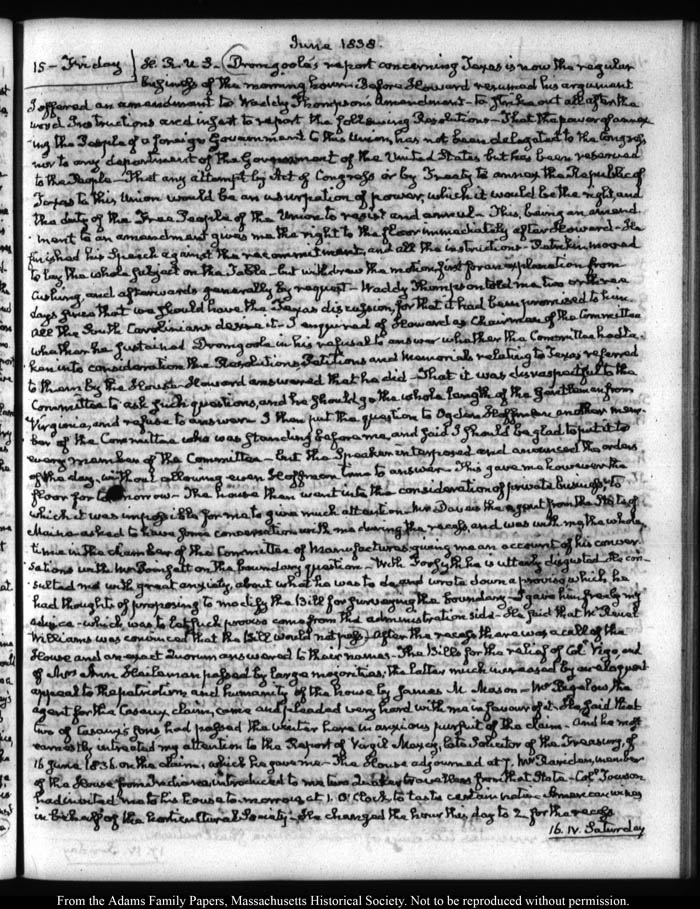 June 1838.
15 - Friday H. R. U. S. Dromgoole's report concerning Texas is now the regular
business of the morning hour. Before Howard resumed his argument
I offered an amendment to Waddy Thompson's amendment - to strike out all after the
word Instructions and insert to report the following Resolutions - That the power of annex-
ing the People of a foreign Government to this Union, has not been delegated to the Congress
nor to any department of the Government of the United States but has been reserved
to the People - That any attempt by Act of Congress or by Treaty to annex the Republic of
Texas to this Union would be an usurpation of power, which it would be the right, and
the duty of the Free People of the Union to resist and annul - This, being an amend-
ment to an amendment gives me the right to the floor immediately after Howard - He
finished his Speech against the recommitment, and all the instructions - moved
to lay the whole subject on the Table - but withdrew the motion, first for an explanation from
Cushing, and afterwards generally by request - Waddy Thompson told me two or three
days since that we should have the Texas discussion, for that it had been promised to him
All the South Carolinians desire it - I enquired of Howard as Chairman of the Committee
whether he sustained Dromgoole in his refusal to answer whether the Committee had ta-
ken into consideration the Resolutions, Petitions and Memorials relating to Texas referred
to them by the House - Howard answered that he did - That it was disrespectful to the
Committee to ask such questions, and he should go the whole length of the Gentleman from
Virginia, and refuse to answer. I then put the question to Ogden Hoffman another mem-
ber of the Committee who was standing before me, and said I should be glad to put it to
every member of the Committee - but the Speaker interposed and announced the orders
of the day, without allowing even Hoffman time to answer - This gave me however the
floor for to morrow - The house then went into the consideration of private business, to
which it was impossible for me to give much attention. Mr Davis the agent from the State of
Maine asked to have some conversation with me during the recess, and was with me the whole
time in the chamber of the Committee of Manufactures giving me an account of his conver-
sations with Mr Poinsett on the boundary question - With Forsyth he is utterly disgusted. He con-
sulted me with great anxiety, about what he was to do, and wrote down a proviso which he
had thoughts of proposing to modify the Bill for surveying the boundary - I gave him freely my
advice - which was to let such proviso come from the administration side - He said that Mr Reuel
Williams was convinced that the Bill would not pass. After the recess there was a call of the
House and an exact Quorum answered to their names - The Bills for the relief of Col. Vigo, and
of Mrs Ann Heileman passed by large majorities; the latter much increased by an eloquent
appeal to the patriotism and humanity of the house by James M. Mason - Mr Bigelow the
agent for the Caseaux claim, came and pleaded very hard with me in favour of it. He said that
two of Caseaux's sons had passed the winter here in anxious pursuit of the claim - And he most
earnestly intreated my attention to the Report of Virgil Maxcy, late Solicitor of the Treasury, of
16 June 1836 on the claim, which he gave me - The House adjourned at 7. Mr member
of the House from Indiana introduced to me two Quaker from that State - Col. Towson
had invited me to his house to-morrow at 1. O'Clock to taste certain native American wines
in behalf of the horticultural Society. He changed the hour this day to 2. for the recess
16. IV. Saturday
From the Adams Family Papers, Massachusetts Historical Society. Not to be reproduced without permission.